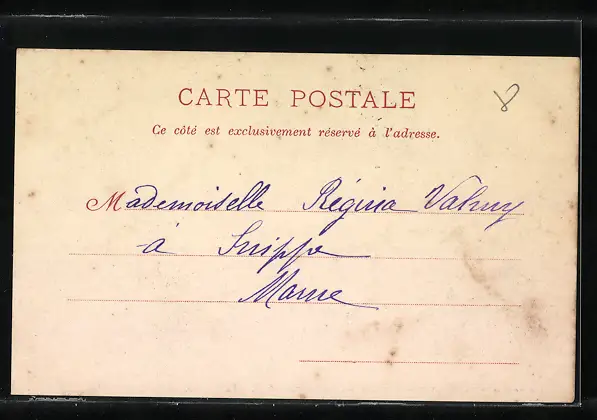 CARTE POSTALE
Ce côté est exclusivement réservé à l'adresse.
Mademoiselle Régina Valmy
à Suippe
Marne